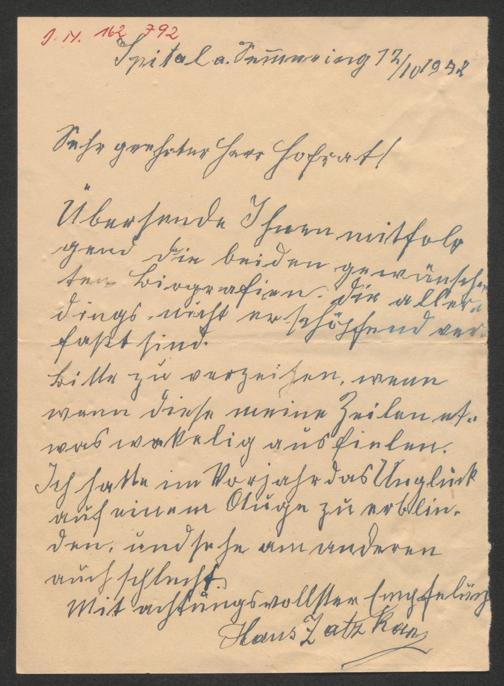 J. N. 162 792
Spital a. Semmering 12/10 1942
Sehr geehrter Herr Hofrat!
Übersende Ihnen mitfolg
gend die beiden gewünsch
ten Biografien. die aller-
dings nicht erschöpfend ver-
faßt sind.
Bitte zu verzeihen, wenn
wenn diese meine Zeilen et-
was wakelig ausfielen.
Ich hatte im Vorjahr das Unglück
auf einem Auge zu erblin-
den, und sehe am anderen
auch schlecht.
Mit achtungsvollster Empfelung
Hans Zatzka